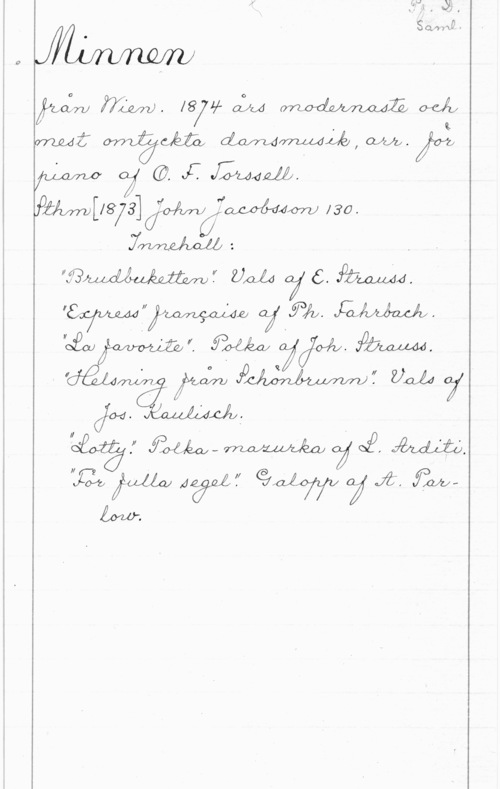 Pf. D.
Saml.
Minnen
från Wien. 1874 års modernaste och
mest omtyckta dansmusik, arr. för
piano af O. F. Torssell.
Sthm [1873] John Jacobsson 130.
Innehåll :
"Brudbuketten". Vals af E. Strauss.
"Express" française af Ph. Fahrbach.
"La favorite". Polka af Joh. Strauss.
"Helsning från Schönbrunn". Vals af
Jos. Kaulisch.
"Lotty". Polka-mazurka af L. Arditi.
"För fulla segel". Galopp af A. Par-
low.